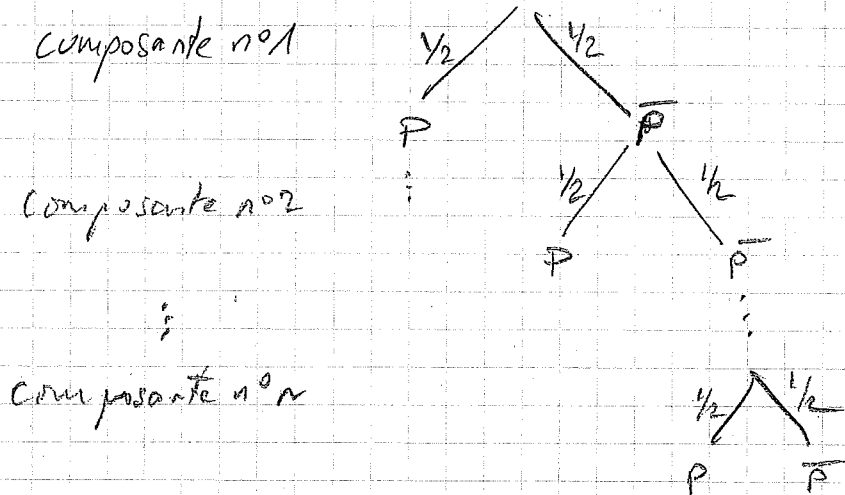 composante n°1
1/2 1/2
P P̅
⋮
composante n°2
1/2 1/2
P P̅
⋮ ⋮
composante n° n
1/2 1/2
P P̅